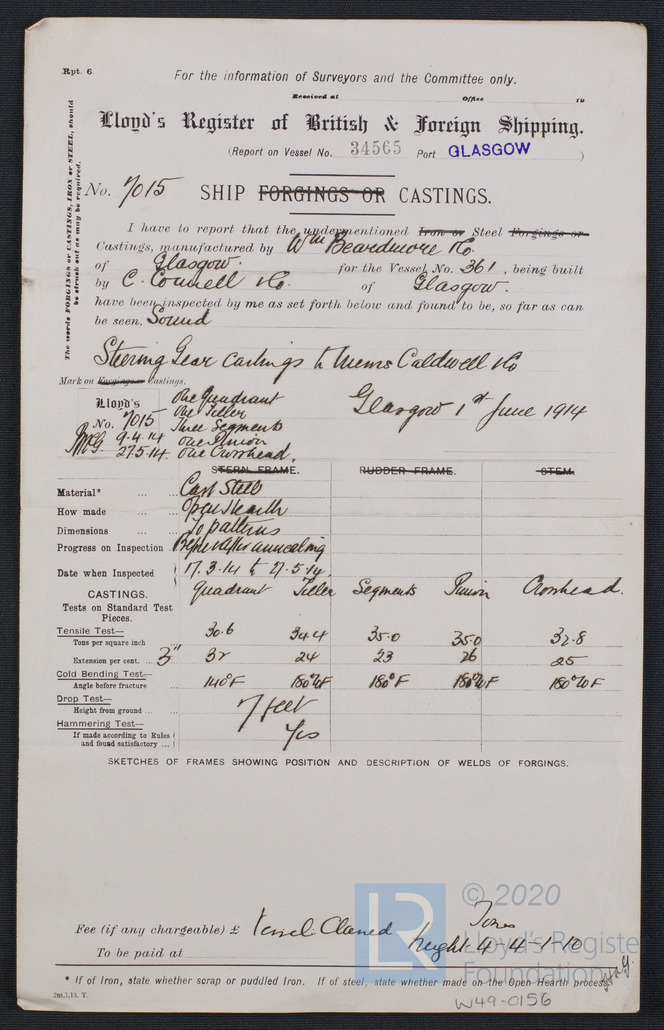 Rpt. 6.
For the information of Surveyors and the Committee only.
Received at Office 19
Lloyd's Register of British & Foreign Shipping.
(Report on Vessel No. 34565 Port GLASGOW )
The words FORGINGS or CASTINGS, IRON or STEEL, should be struck out as may be required.
No. 7015 SHIP FORGINGS OR CASTINGS.
I have to report that the undermentioned Iron or Steel Forgings or
Castings, manufactured by Wm Beardmore & Co.
of Glasgow. for the Vessel, No. 361, being built
by C. Connell & Co. of Glasgow.
have been inspected by me as set forth below and found to be, so far as can
be seen, Sound
Steering Gear Castings to Messrs Caldwell & Co
Mark on Forgings or Castings.
Lloyd's One Quadrant
One Tiller
No. 7015 Three Segments
9.4.14 One Pinion
27.5.14 One Crosshead.
Glasgow 1st June 1914
STERN FRAME. RUDDER FRAME. STEM.
Material* ... ... Cast Steel
How made ... ... Open Hearth
Dimensions ... ... To patterns
Progress on Inspection Before & after annealing
Date when Inspected 17.3.14 to 27.5.14.
CASTINGS. Quadrant Tiller Segments Pinion Crosshead.
Tests on Standard Test
Pieces.
Tensile Test— 30.6 34.4 35.0 35.0 32.8
Tons per square inch
Extension per cent. ... 3" 32 24 23 26 25
Cold Bending Test—
Angle before fracture ... 140°F 180°UF 180°F 180°UF 180°UF
Drop Test—
Height from ground ... ... 7 feet
Hammering Test—
If made according to Rules
and found satisfactory ... Yes
SKETCHES OF FRAMES SHOWING POSITION AND DESCRIPTION OF WELDS OF FORGINGS.
Fee (if any chargeable) £ Vessel: Classed Tons
To be paid at Weight 4-4-1-10
* If of Iron, state whether scrap or puddled Iron. If of steel, state whether made on the Open Hearth process.
2m,1,13. T.
W49-0156
LR
© 2020
Lloyd's Register
Foundation